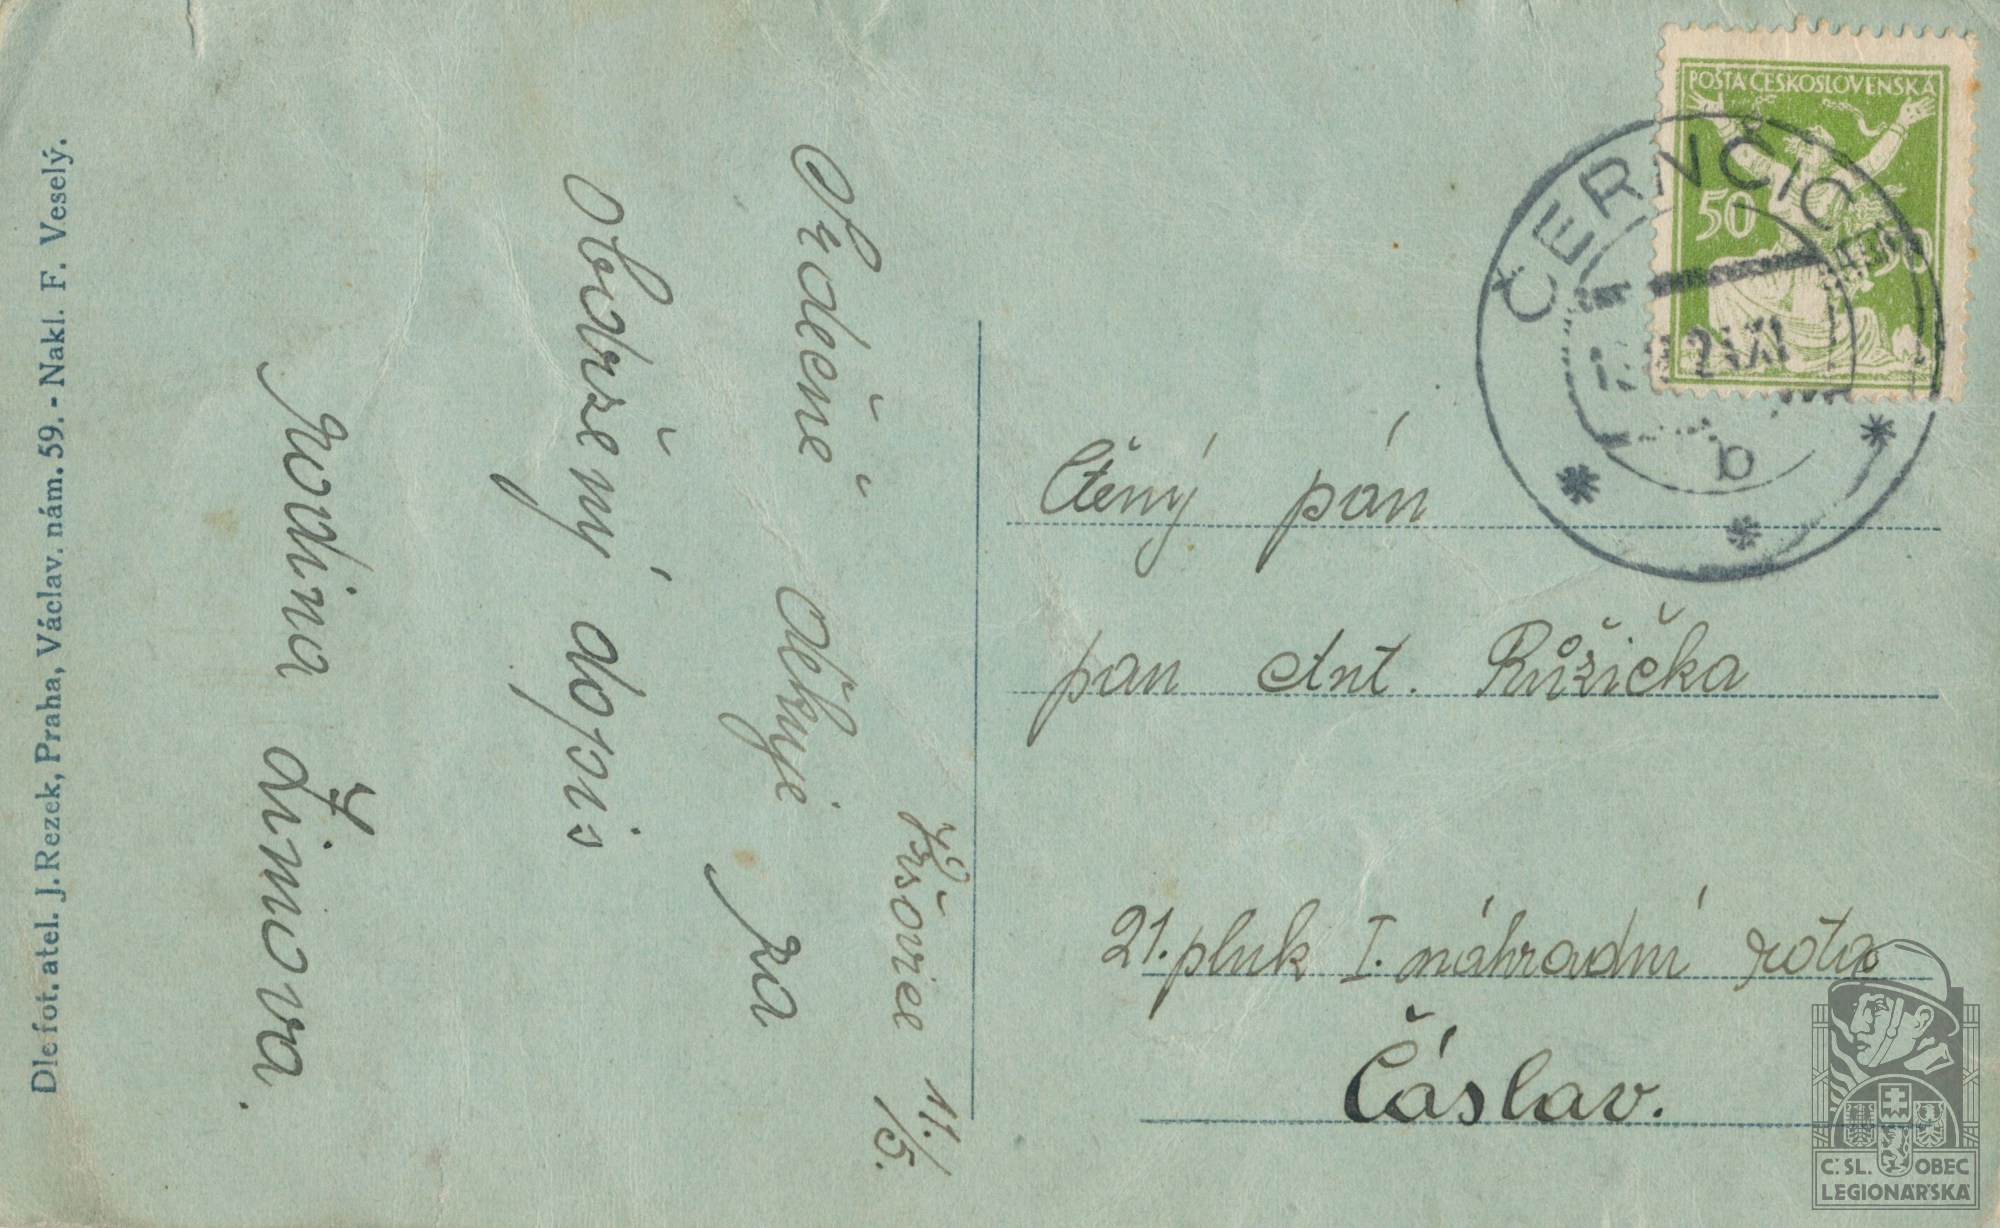 Dle fot. atel. J. Rezek, Praha, Václav. nám. 59. - Nakl. F. Veselý.
Kršovice 11./5.
Srdečně děkuje za
obdržený dopis
rodina Zimova.
POŠTA ČESKOSLOVENSKÁ
50
50
ČERNČIC
24 XI
b
Ctěný pán
pan Ant. Růžička
21. pluk I. náhradní rota
Čáslav.
Č. SL. OBEC
LEGIONÁŘSKÁ